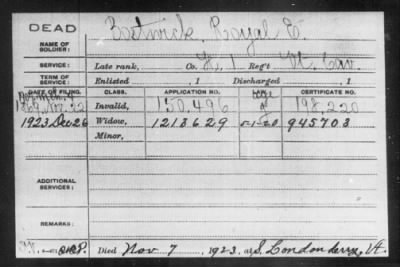 DEAD
NAME OF SOLDIER: Bostwick, Royal E.
SERVICE: Late rank, Co. 1 Reg't Vt. Cav.
TERM OF SERVICE: Enlisted , 1 Discharged , 1
DATE OF FILING. CLASS. APPLICATION NO. CERTIFICATE NO.
Invalid, 150,496 198,220
1923 Dec 26 Widow, 1213629 5-1-20 945703
Minor,
ADDITIONAL SERVICES:
REMARKS:
Died Nov 7, 1923, at S. Londonderry, Vt.